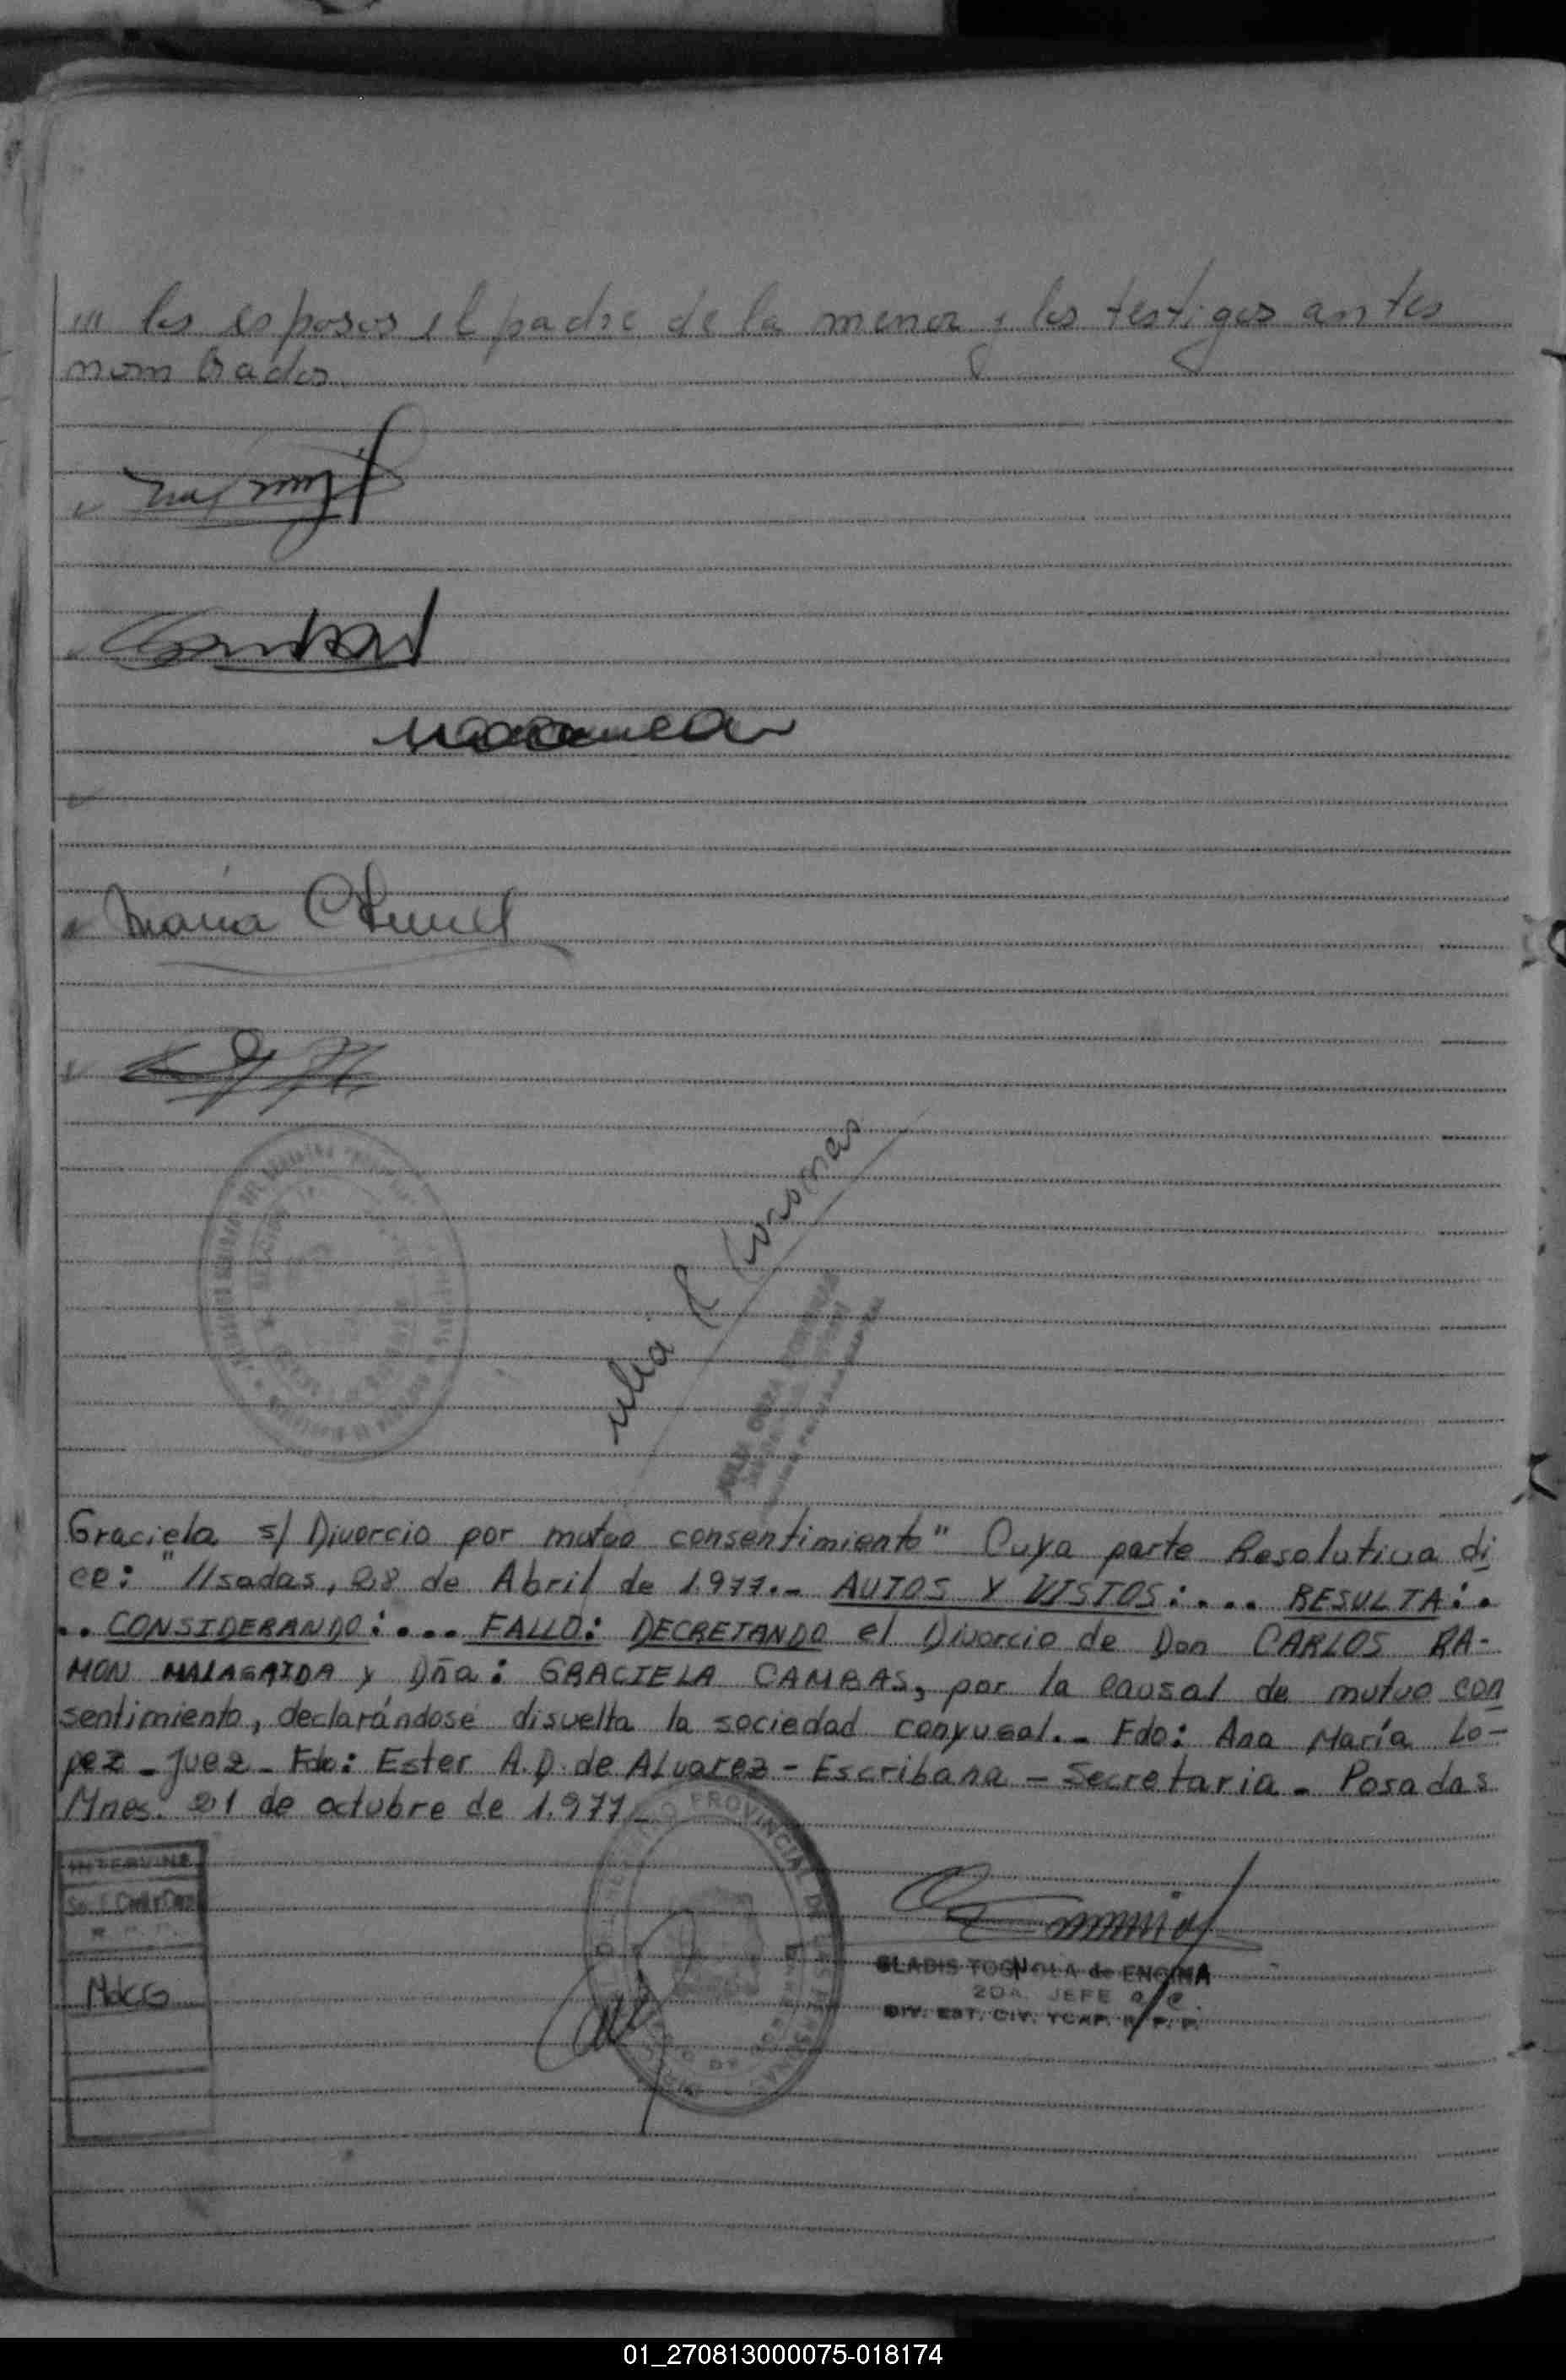 /// los esposos el padre de la menor y los testigos antes
nombrados
María
Graciela s/ Divorcio por mutuo consentimiento" Cuya parte Resolutiva di
ce: "//sadas, 28 de Abril de 1.977.- AUTOS Y VISTOS:.... RESULTA:.
.. CONSIDERANDO:.... FALLO: DECRETANDO el Divorcio de Don CARLOS RA-
MON MALAGRIDA y Dña: GRACIELA CAMBAS, por la causal de mutuo con
sentimiento, declarándose disuelta la sociedad conyugal.- Fdo: Ana María Lo-
pez - Juez - Fdo: Ester A.D. de Alvarez - Escribana - Secretaria - Posadas
Mnes. 21 de octubre de 1.977-
PROVINCIAL DE LAS PERSONAS
INTERVINE
MdCG
GLADIS TOGNOLA de ENCINA
2DA. JEFE
DIV. EST. CIV. YCAP. R. P. P.
01_270813000075-018174